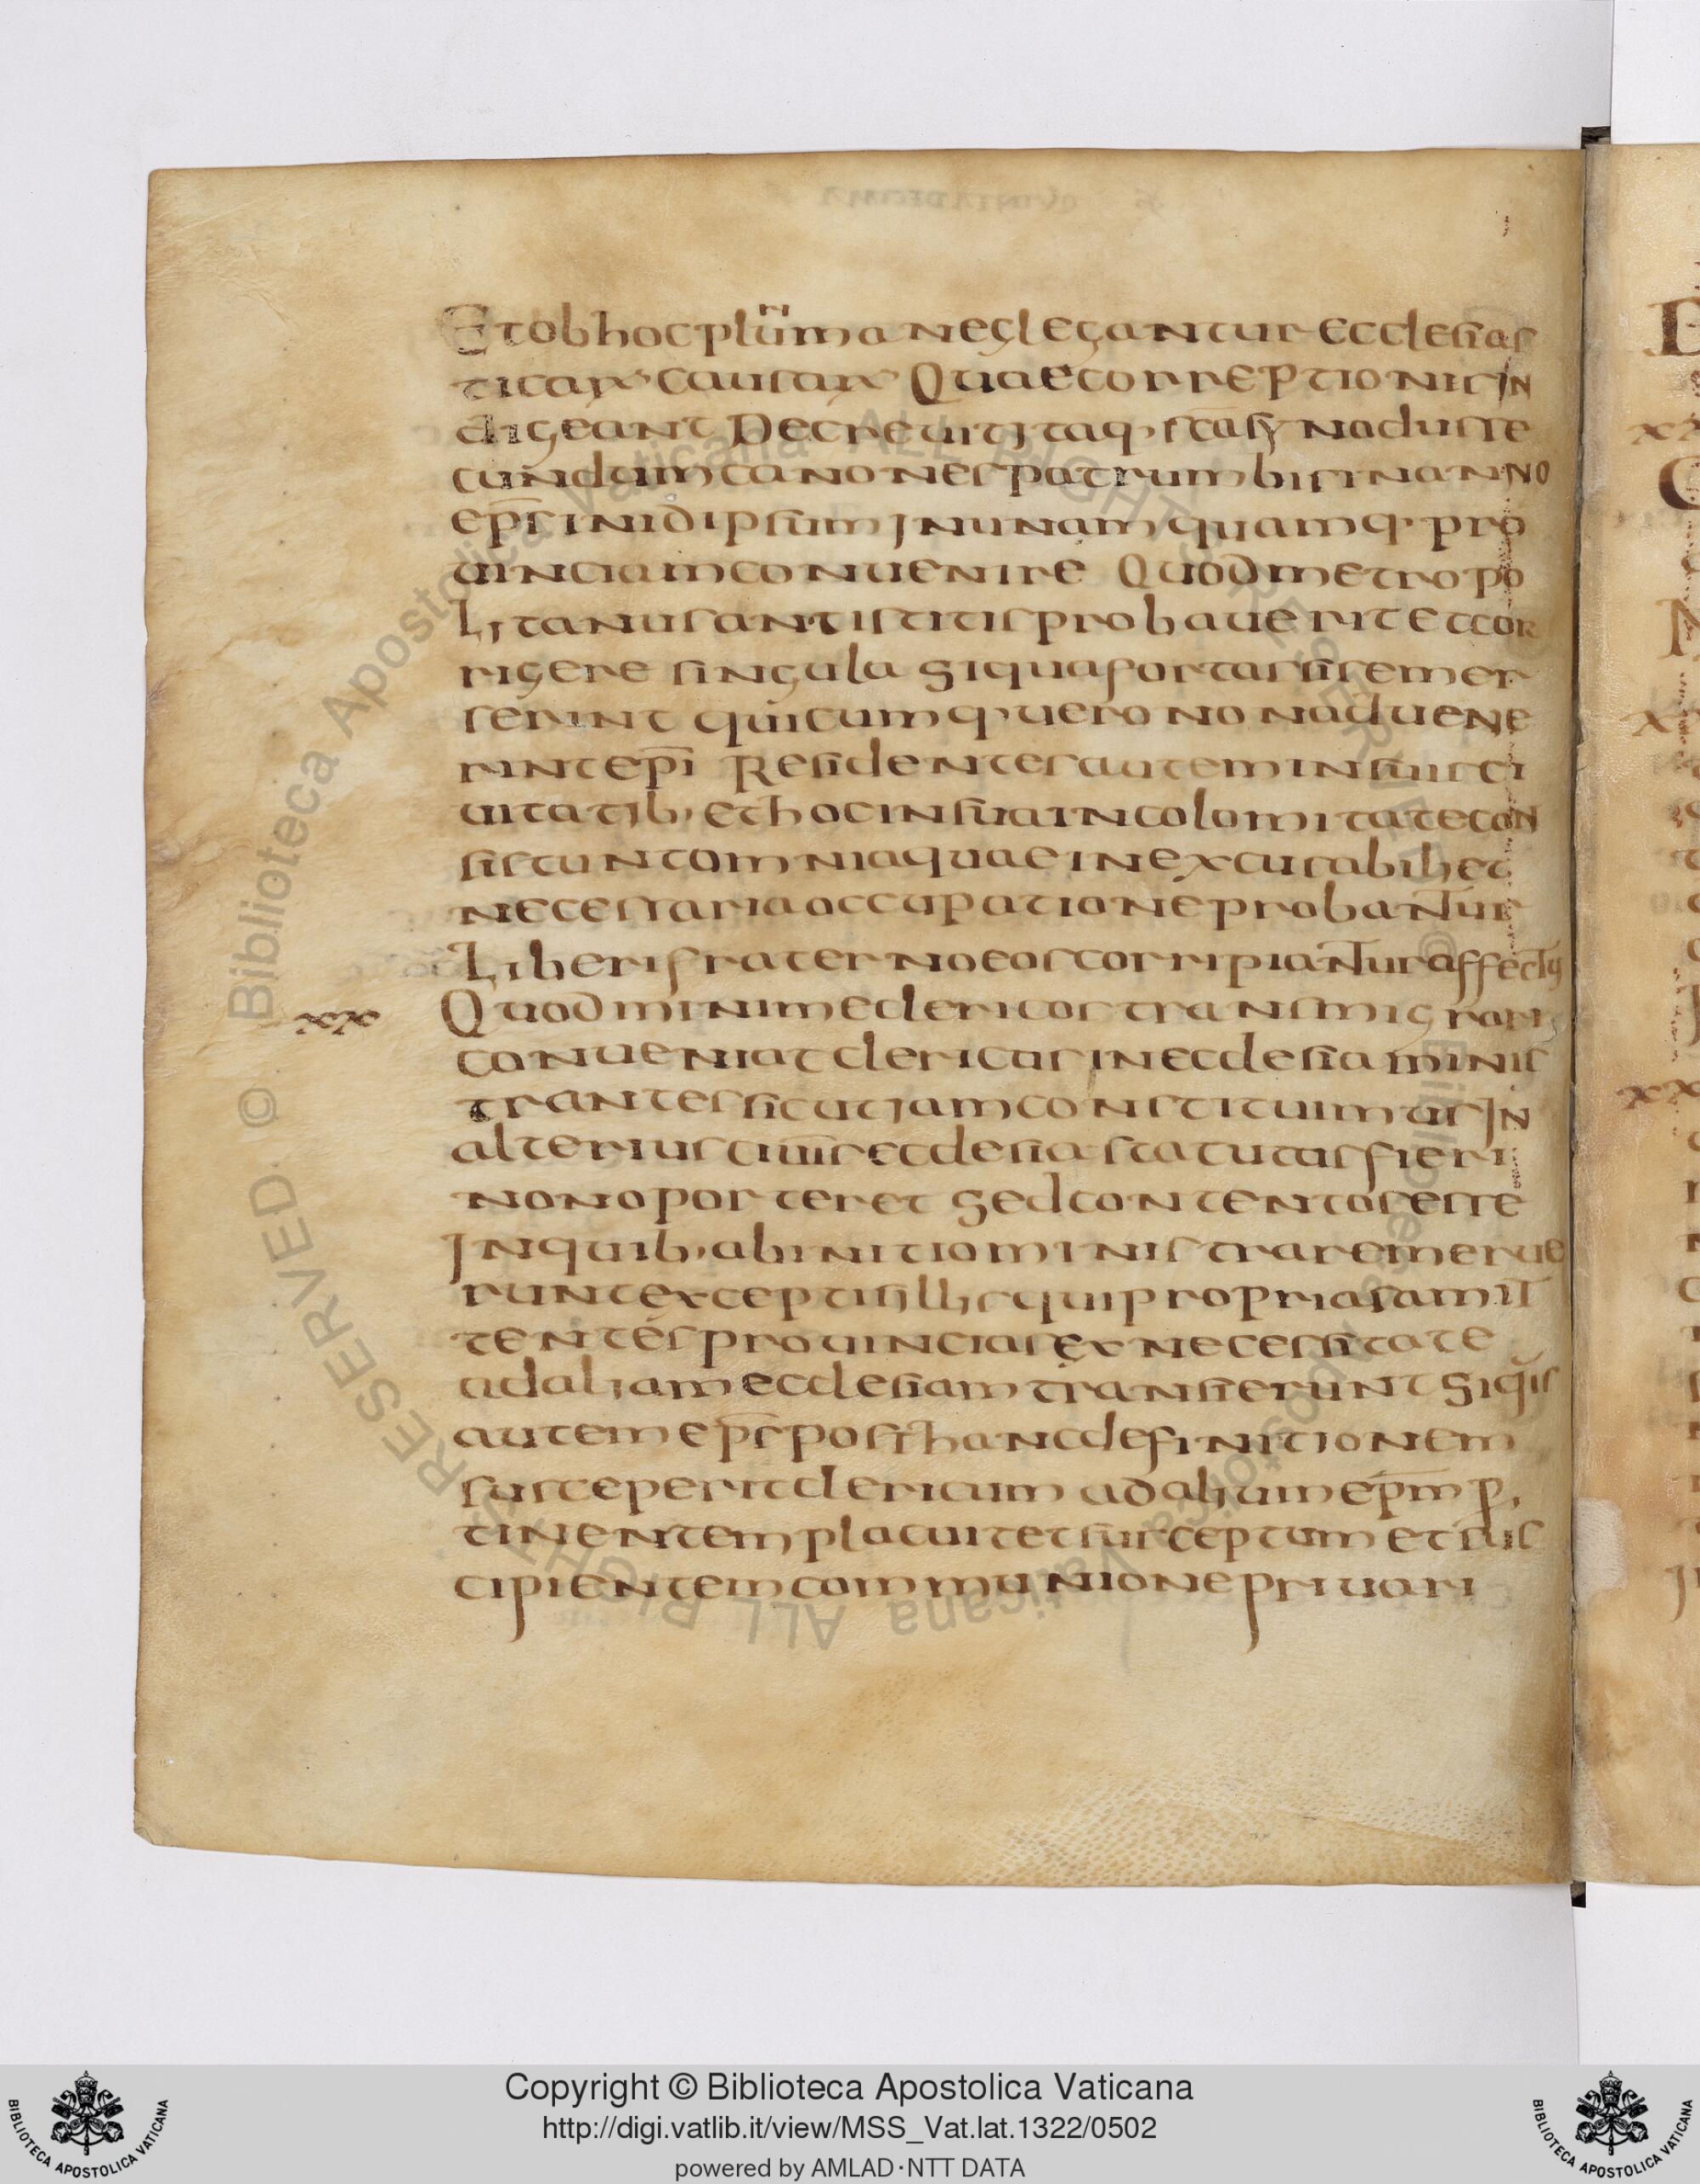 Et ob hoc plurima neglegantur ecclesias
ticarum causarum Quae correptionis in
digeant Decrevit itaq· sca synodus se
cundum canones patrum bis in anno
eps in id ipsum in unam quamq· pro
vinciam convenire Quod metropo
litanus antistitis probaverit et cor
rigere singula si qua fortassis emer
serint quicumq· vero non advene
rint epi Residentes autem in suis ci
vitatib· et hoc in sua incolomitate con
sistunt omnia quae inexcusabili et
necessaria occupatione probantur
Liberi fraterno eos corripiantur affectu
xix
Quod minime clericos transmigrari
conveniat clericus in ecclesia minis
trantes sicut iam constituimus in
alterius civits ecclesia statutus fieri
non oporteret Sed contentos esse
in quib· ab initio ministrare merue
runt exceptis illis qui proprias amit
tentes provincias ex necessitate
ad aliam ecclesiam transierunt Siquis
autem eps post hanc definitionem
susceperit clericum ad alium epm p
tinentem placuit et susceptum et sus
cipientem communione privari
Copyright © Biblioteca Apostolica Vaticana
http://digi.vatlib.it/view/MSS_Vat.lat.1322/0502
powered by AMLAD·NTT DATA